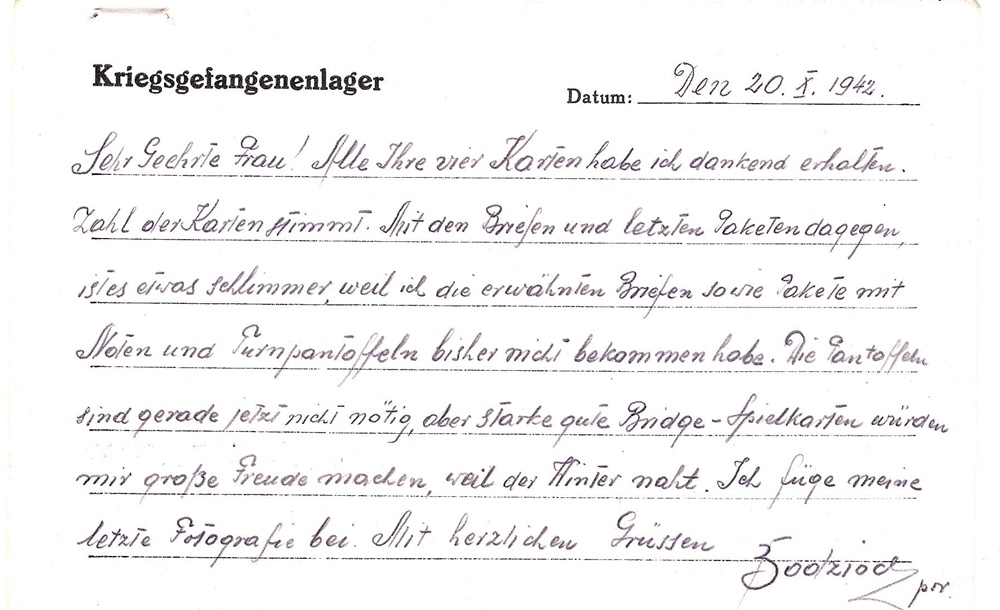 Kriegsgefangenenlager
Datum: Den 20. X. 1942.
Sehr Geehrte Frau! Alle Ihre vier Karten habe ich dankend erhalten.
Zahl der Karten stimmt. Mit den Briefen und letzten Paketen dagegen,
ist es etwas schlimmer, weil ich die erwähnten Briefen sowie Pakete mit
Noten und Turnpantoffeln bisher nicht bekommen habe. Die Pantoffeln
sind gerade jetzt nicht nötig, aber starke gute Bridge-Spielkarten würden
mir große Freude machen, weil der Winter naht. Ich füge meine
letzte Fotografie bei. Mit herzlichen Grüssen
por.